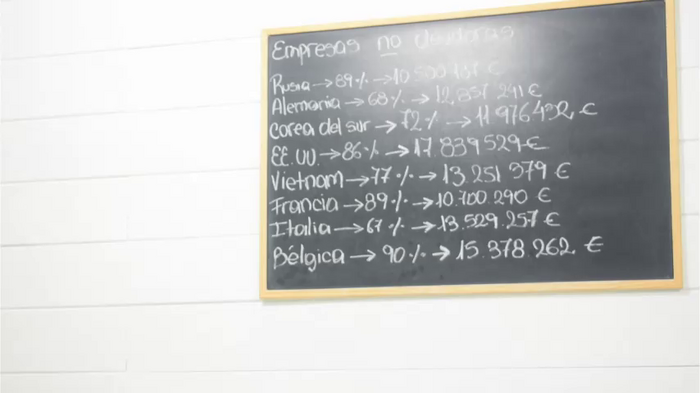 Empresas no deudoras
Rusia → 89% → 10 500 137 €
Alemania → 68% → 12,837 241 €
Corea del sur → 72% → 11 976 432 €
EE.UU. → 86% → 17 839 529 €
Vietnam → 77% → 13.251 979 €
Francia → 89% → 10.700 290 €
Italia → 67% → 13.529.257 €
Bélgica → 90% → 15.378 262 €